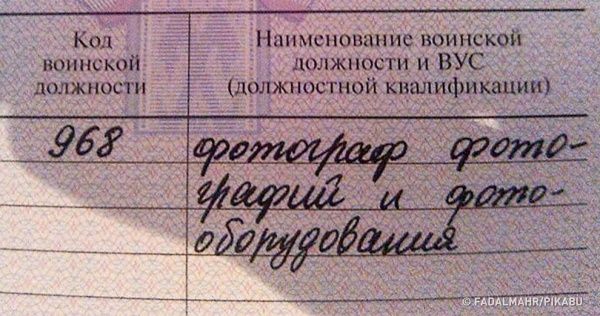 Код
воинской
должности
Наименование воинской
должности и ВУС
(должностной квалификации)
968
фотограф фото-
графий и фото-
оборудования
© FADALMAHR/PIKABU